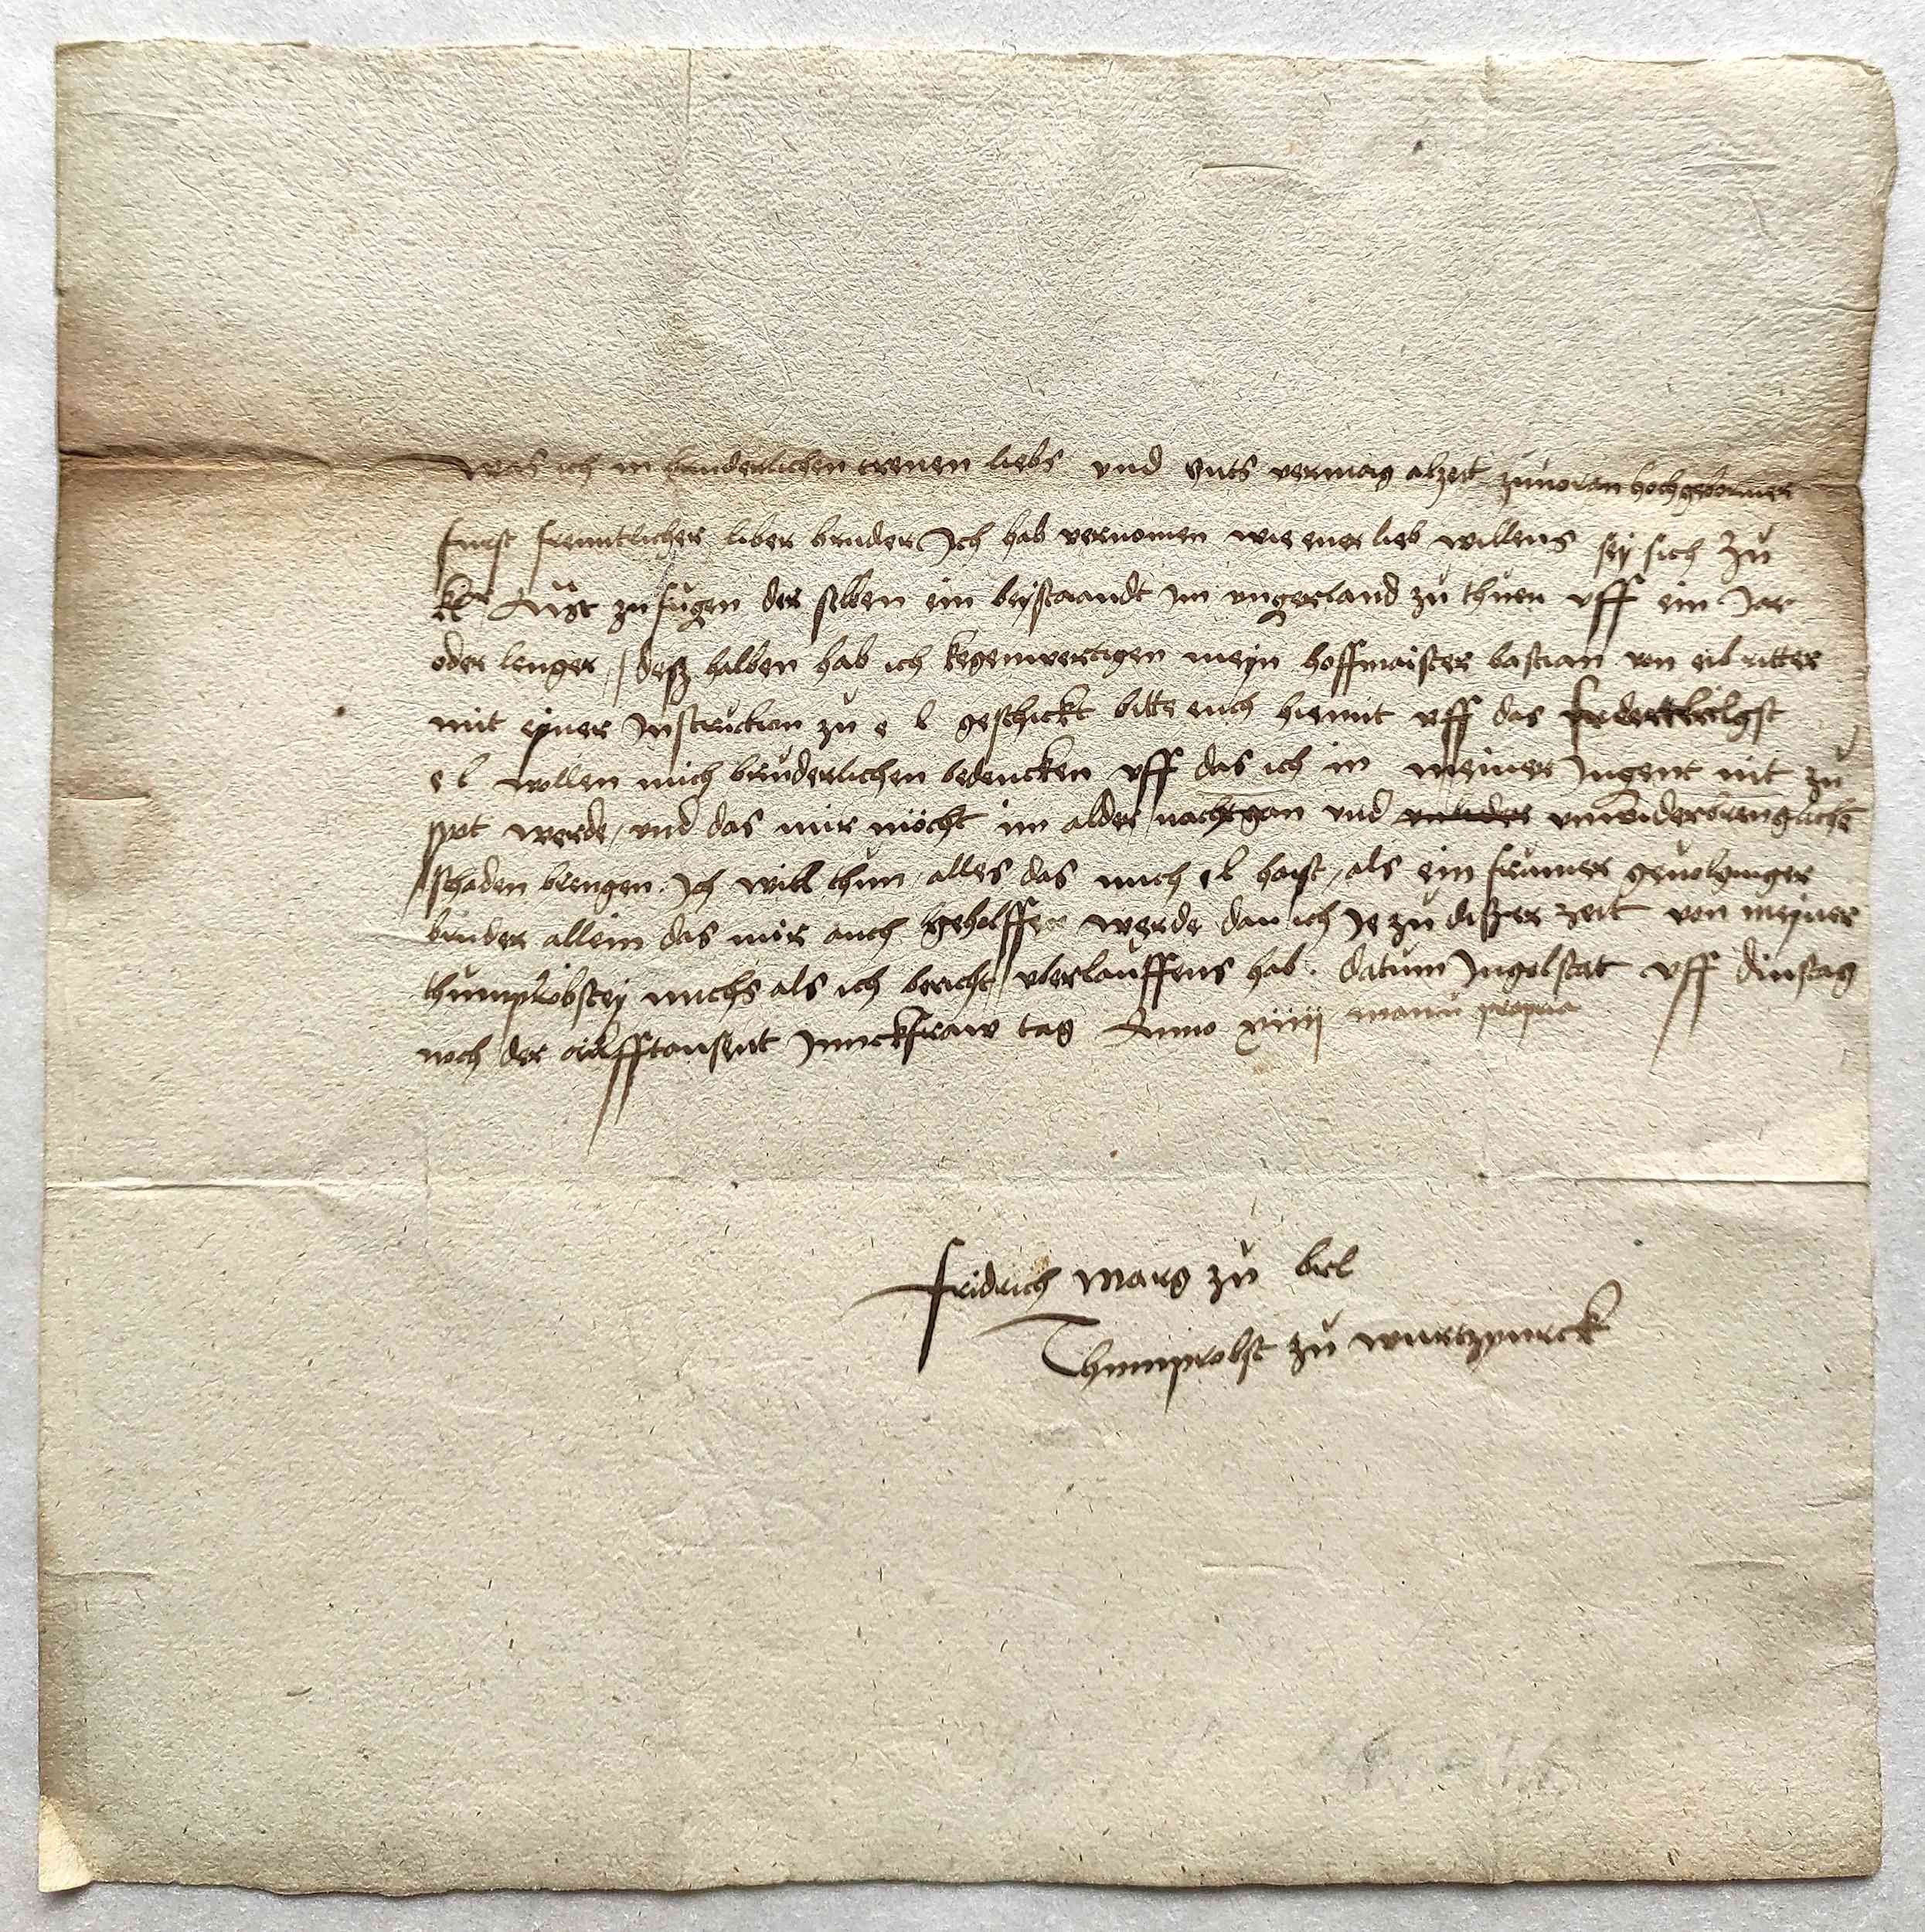 was ich in bruderlichen trewen liebs und guts vermag alzeit zuuoran hochgeborner
furst freuntlicher liber bruder Jch hab vernomen wie euer lieb willens sey sich zu
zufugen der selben ein beystaandt Jm vngerland zu thuen vff ein Jar
oder lenger / desz halben hab ich kegenwertigen meyn hoffmaister bastian von eib ritter
mit eyner Jnstruktion zu e l geschickt bitt euch hiemit vff das
e l wollen mich bruderlichen bedencken vff das ich in meiner Jugent nit zu
spot werde / vnd das mir möcht im alder nachtgan vnd
schaden brengen. Jch will thun alles das mich el haist / als ein frumer geuolgiger
bruder allein das mir auch geholffen werde dan ich Je zu diszer zeit von meyner
thumprobstey nichs als ich bericht vberlauffens hab. datum Jngolstat vff dinstag
noch der aidlfftausent Junckfraw tag Anno xiiij manu propria
fridrich marg zu
Thumprobst zu wurtzpurck